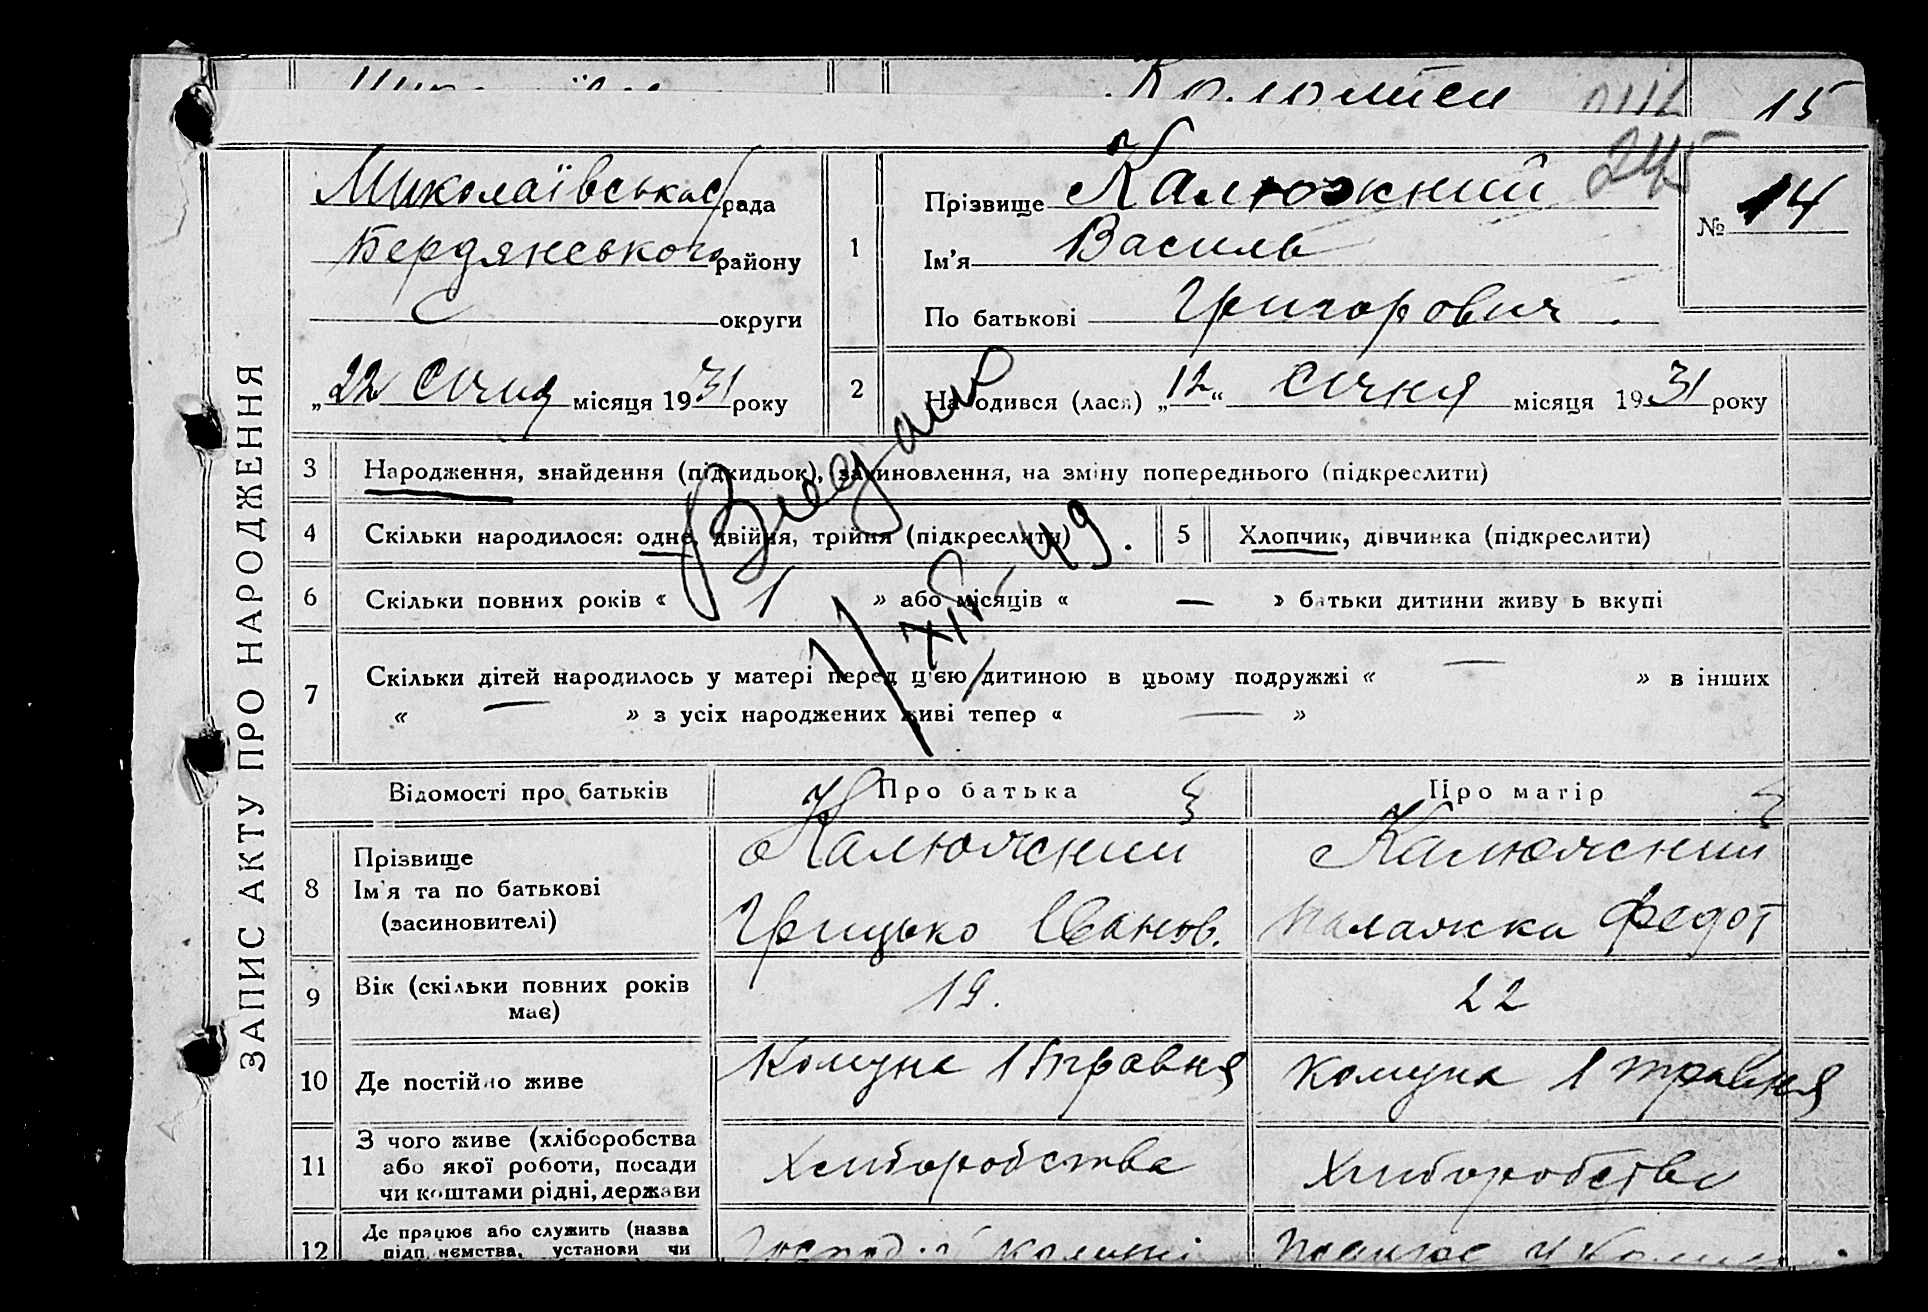 Коломієц
15
ЗАПИС АКТУ ПРО НАРОДЖЕННЯ
Миколаївська рада
Бердянського району
округи
„22 Січня місяця 1931 року
1
Прізвище Калюжний
Ім'я Василь
По батькові Григорович
245
№ 14
2
Народився (лася) „12“ Січня місяця 1931 року
3 Народження, знайдення (підкидьок), засиновлення, на зміну попереднього (підкреслити)
4 Скільки народилося: одне, двійня, трійня (підкреслити)
5 Хлопчик, дівчинка (підкреслити)
6 Скільки повних років « 1 » або місяців « — » батьки дитини живуть вкупі
7 Скільки дітей народилось у матері перед цією дитиною в цьому подружжі « — » в інших
« — » з усіх народжених живі тепер « — »
49.
Відомості про батьків
Про батька
Про матір
8 Прізвище
Ім'я та по батькові
(засиновителі)
Калюжний
Грицько Іванов.
Калюжний
Палажка Федот
9 Вік (скільки повних років
має)
19.
22
10 Де постійно живе
Комуна 1 Травня
Комуна 1 травня
11 З чого живе (хліборобства
або якої роботи, посади
чи коштами рідні, держави
Хліборобства
Хліборобства
12 Де працює або служить (назва
підприємства, установи чи